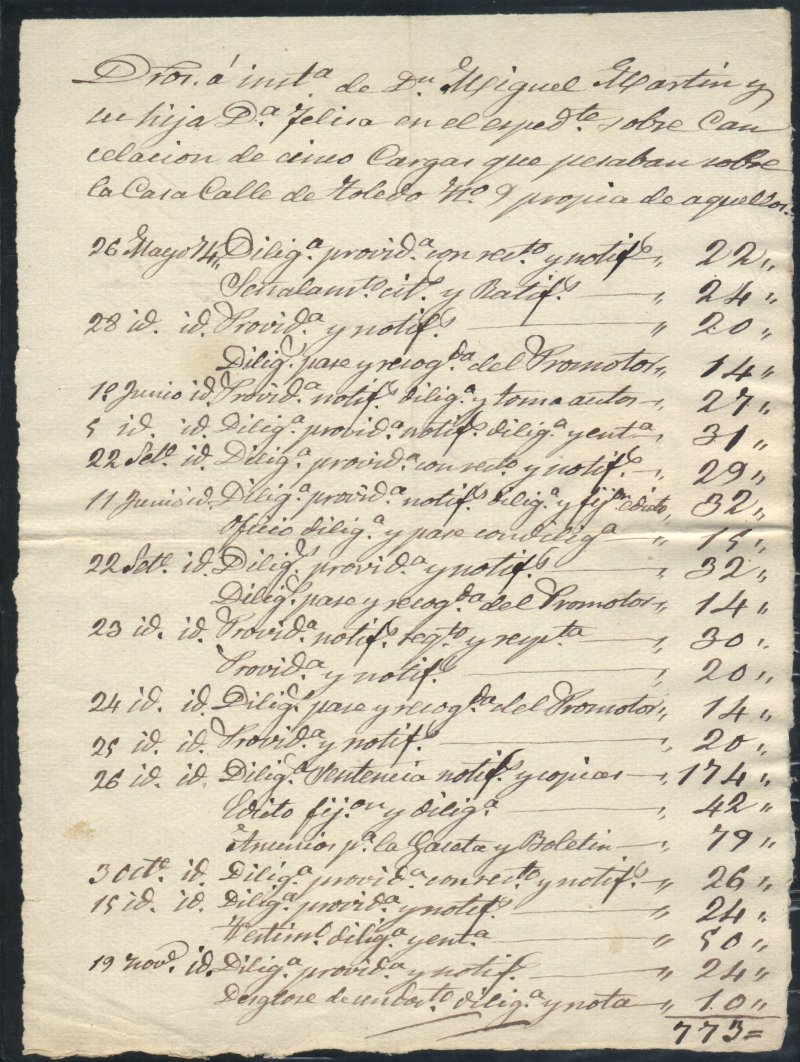 Dros. á inst.a de D.n Miguel Martin y
su hija D.a Felisa en el exped.te sobre Can
celacion de cinco Cargas que pesaban sobre
la Casa Calle de Toledo N.o 9 propia de aquellos.
26 Mayo 74 Dilig.a provid.a con rec.to y notif.s " 22 "
Señalam.to cit.s y Ratif.s " 24 "
28 id. id. Provid.a y notif.s " 20 "
Dilig.s pase y recog.da del Promotor " 14 "
1.o Junio id. Provid.a notif.s dilig.a y toma autos " 27 "
5 id. id. Dilig.a provid.a notif.s dilig.a y ent.a " 31 "
22 Set.e id. Dilig.a provid.a con rec.to y notif.s " 29 "
11 Junio id. Dilig.a provid.a notif.s dilig.a y fij.on edicto " 32 "
Oficio dilig.a y pase con dilig.a " 15 "
22 Set.e id. Dilig.s provid.a y notif.s " 32 "
Dilig.s pase y recog.da del Promotor " 14 "
23 id. id. Provid.a notif.s req.to y resp.ta " 30 "
Provid.a y notif.s " 20 "
24 id. id. Dilig.s pase y recog.da del Promotor " 14 "
25 id. id. Provid.a y notif.s " 20 "
26 id. id. Dilig.a Sentencia notif.s y copias " 174 "
Edicto fij.on y dilig.a " 42 "
Anuncios p.a la Gaceta y Boletin " 79 "
3 Oct.e id. Dilig.a provid.a con rec.to y notif.s " 26 "
15 id. id. Dilig.a provid.a y notif.s " 24 "
Testim.o dilig.a y ent.a " 50 "
19 Nov.e id. Dilig.a provid.a y notif.s " 24 "
Desglose de un doc.to dilig.a y nota " 10 "
773=